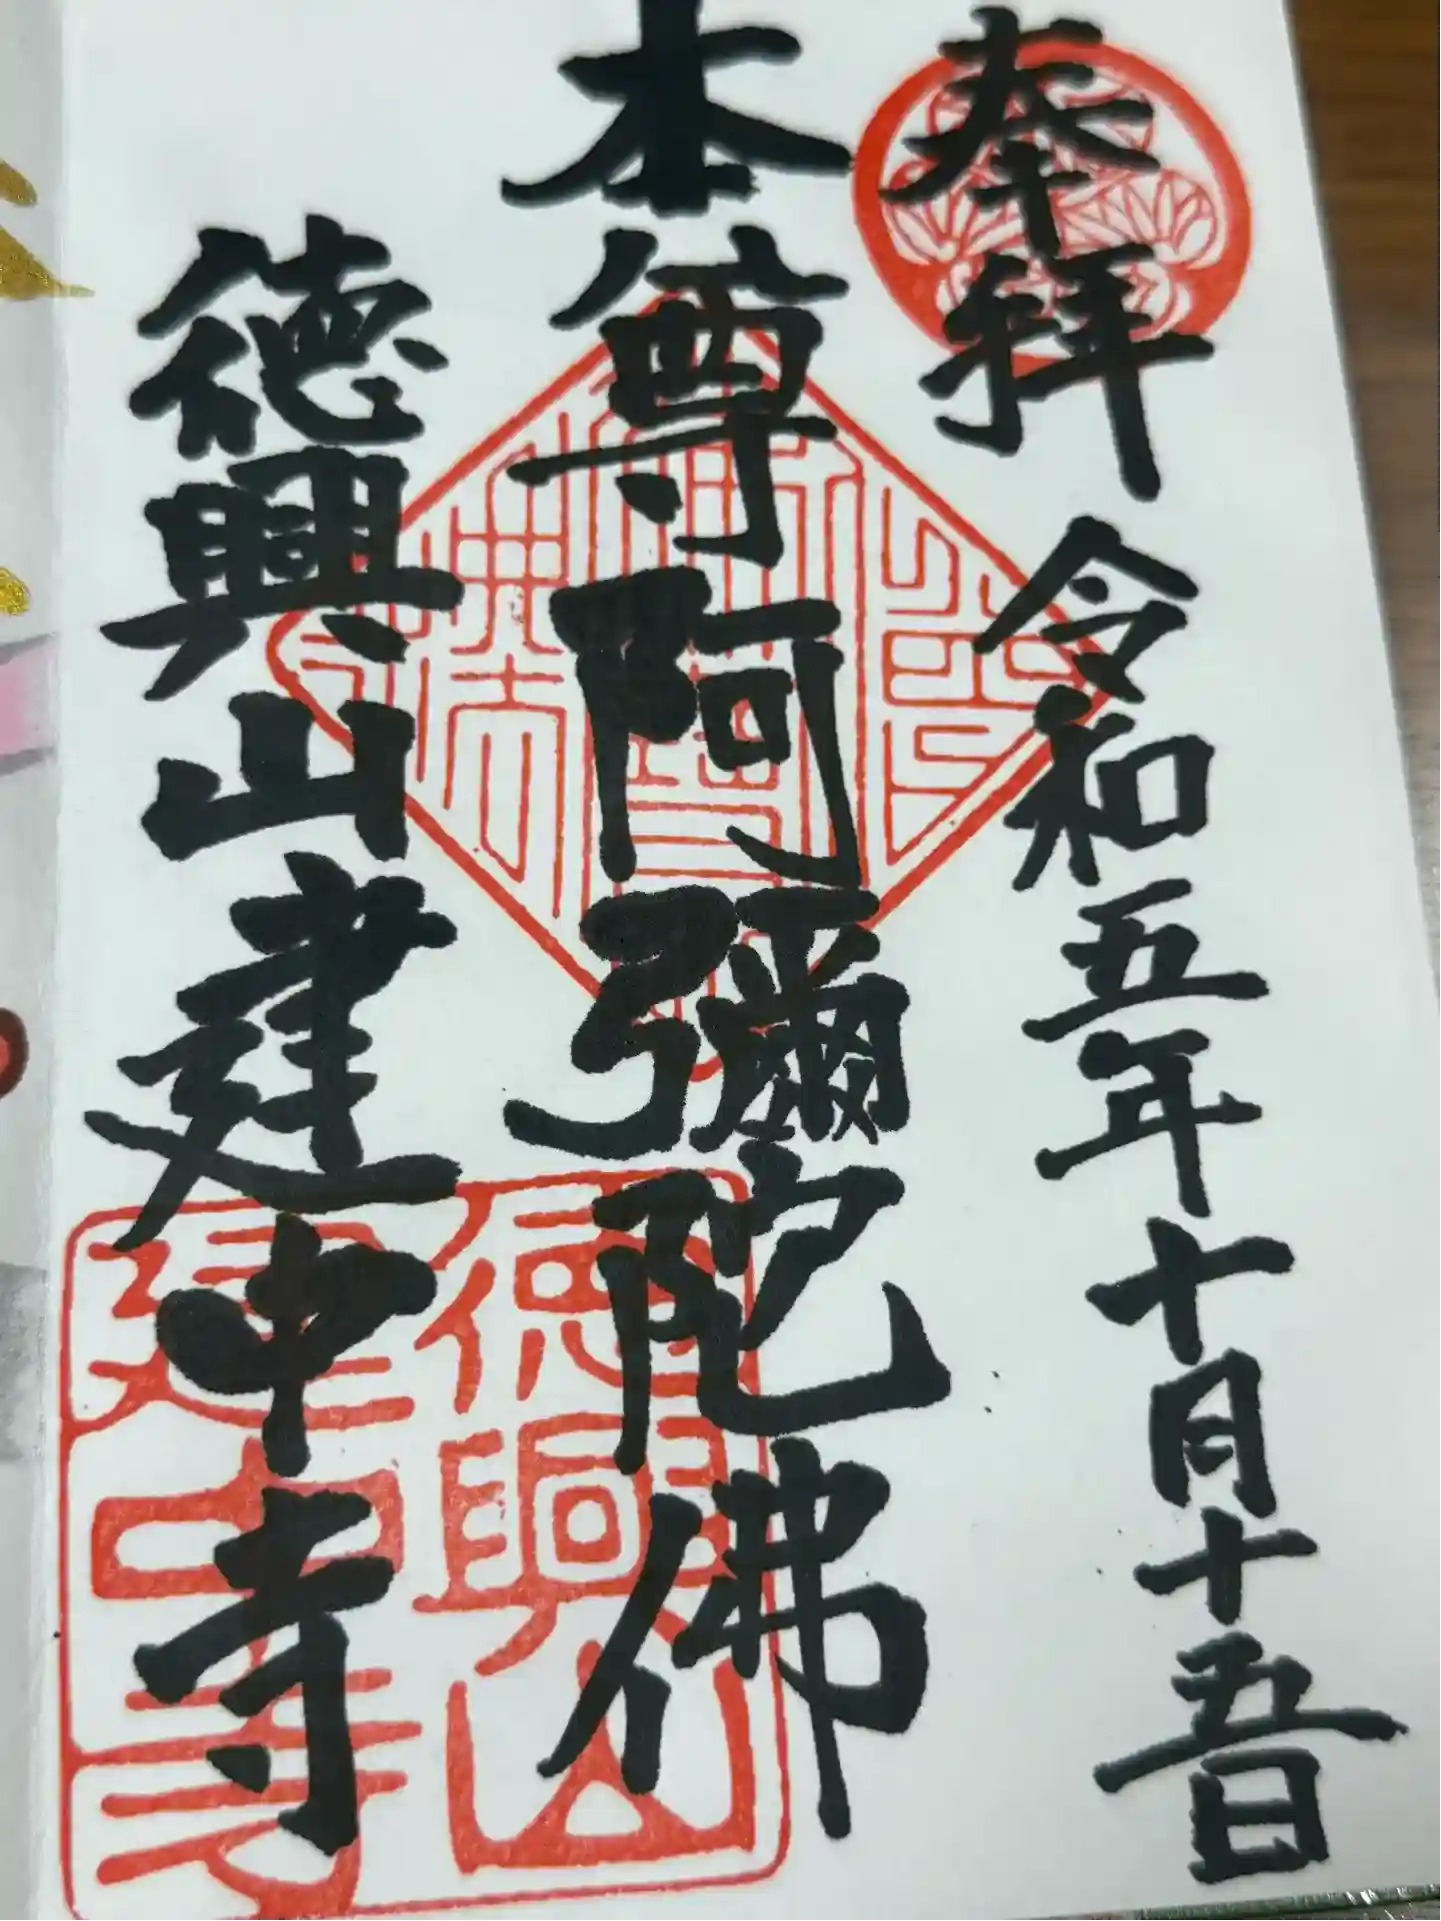 奉拝 令和五年十月十五日
本尊阿彌陀佛
徳興山建中寺
徳興山
建中寺